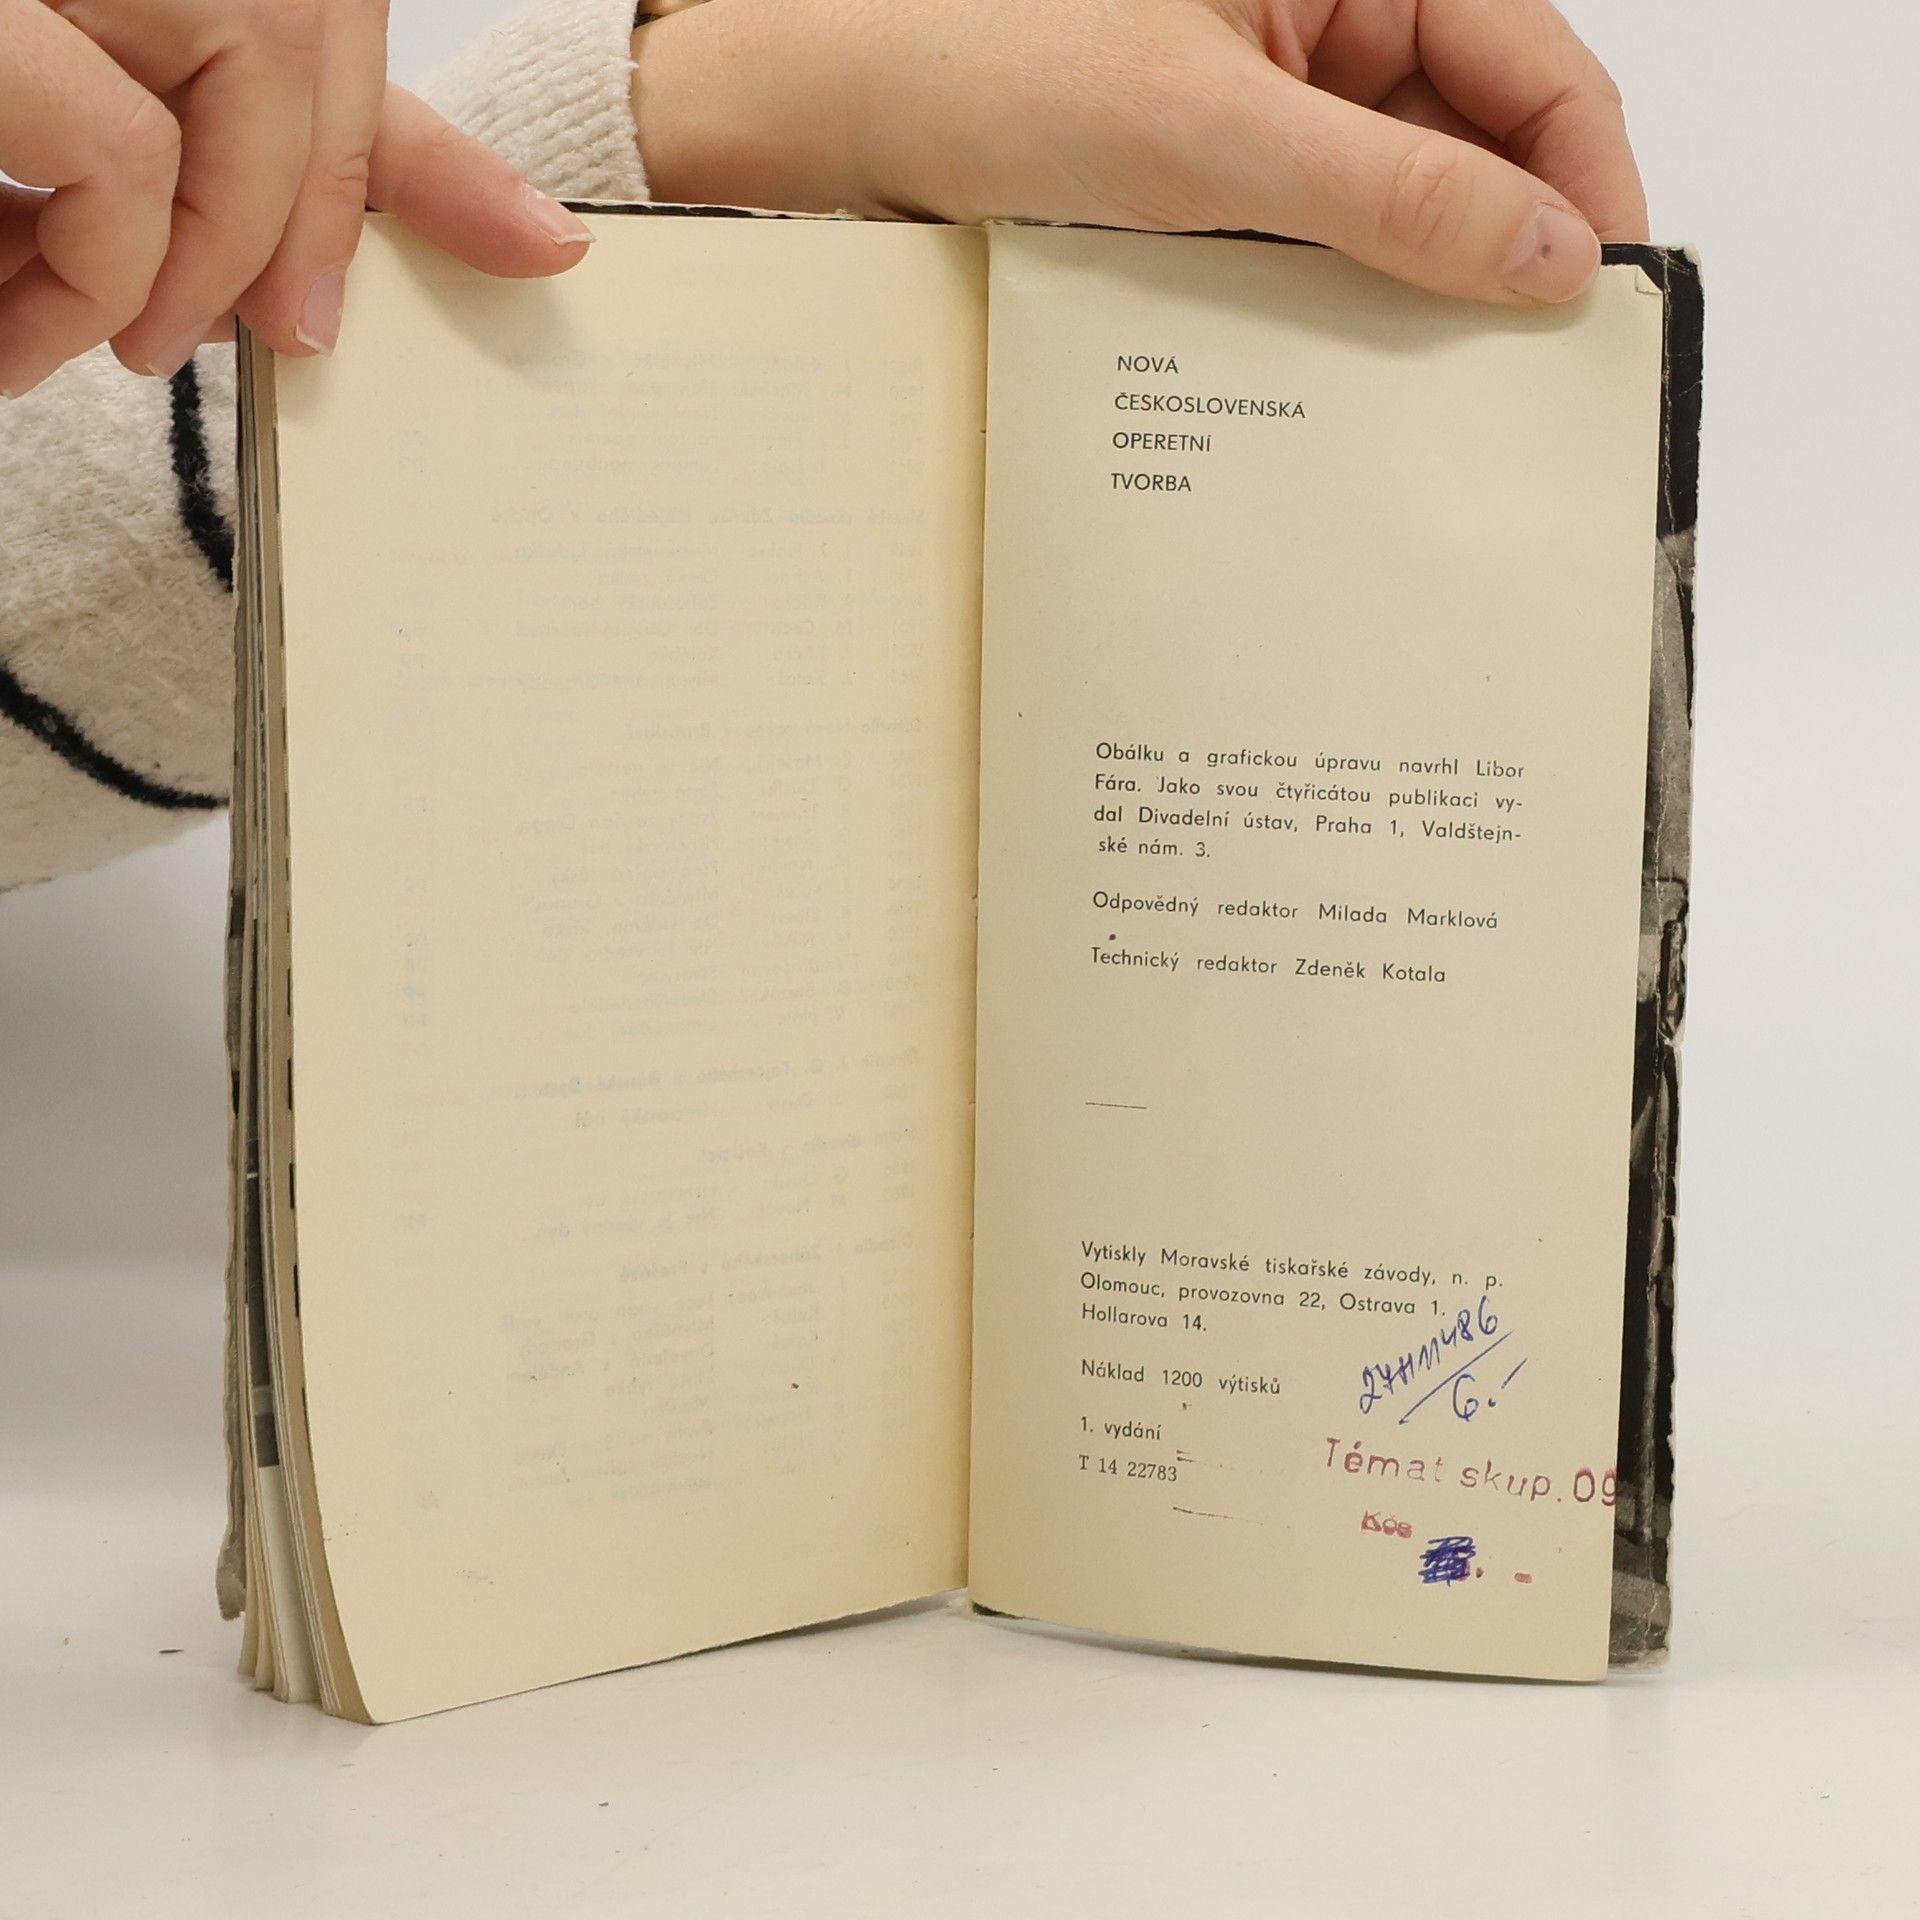 NOVÁ
ČESKOSLOVENSKÁ
OPERETNÍ
TVORBA
Obálku a grafickou úpravu navrhl Libor
Fára. Jako svou čtyřicátou publikaci vy-
dal Divadelní ústav, Praha 1, Valdštejn-
ské nám. 3.
Odpovědný redaktor Milada Marklová
Technický redaktor Zdeněk Kotala
Vytiskly Moravské tiskařské závody, n. p.
Olomouc, provozovna 22, Ostrava 1.
Hollarova 14.
Náklad 1200 výtisků
1. vydání
T 14 22783
6.-
Témat skup. 09
Kčs